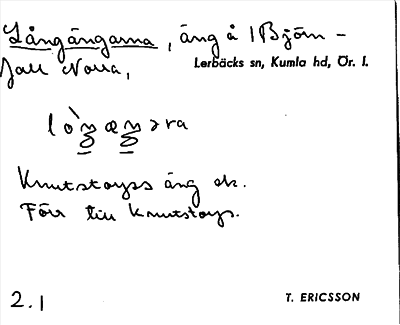 Långängarna, äng å 1 Björn-
fall Norra,
Lerbäcks sn, Kumla hd, Ör. l.
Knutstorps äng ek.
Förr till Knutstorp.
2.1
T. ERICSSON